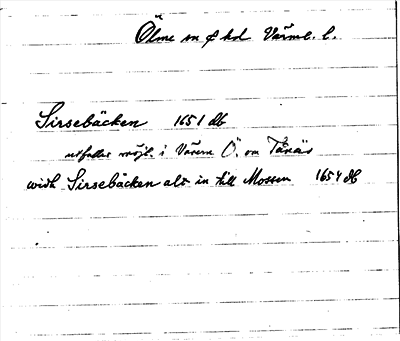 Ölme sn o hd Värml. l.
Sirsebäcken 1651 db
utfaller möjl. i Vänern Ö. om Tånäs
widh Sirsebäcken alt in till Mossen 1654 db